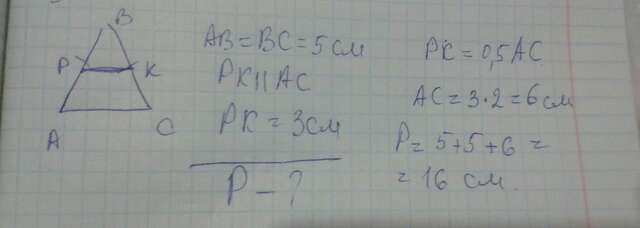 B
P K
A C
AB = BC = 5 см
PK || AC
PK = 3 см
P - ?
PK = 0,5 AC
AC = 3 · 2 = 6 см
P = 5 + 5 + 6 =
= 16 см.